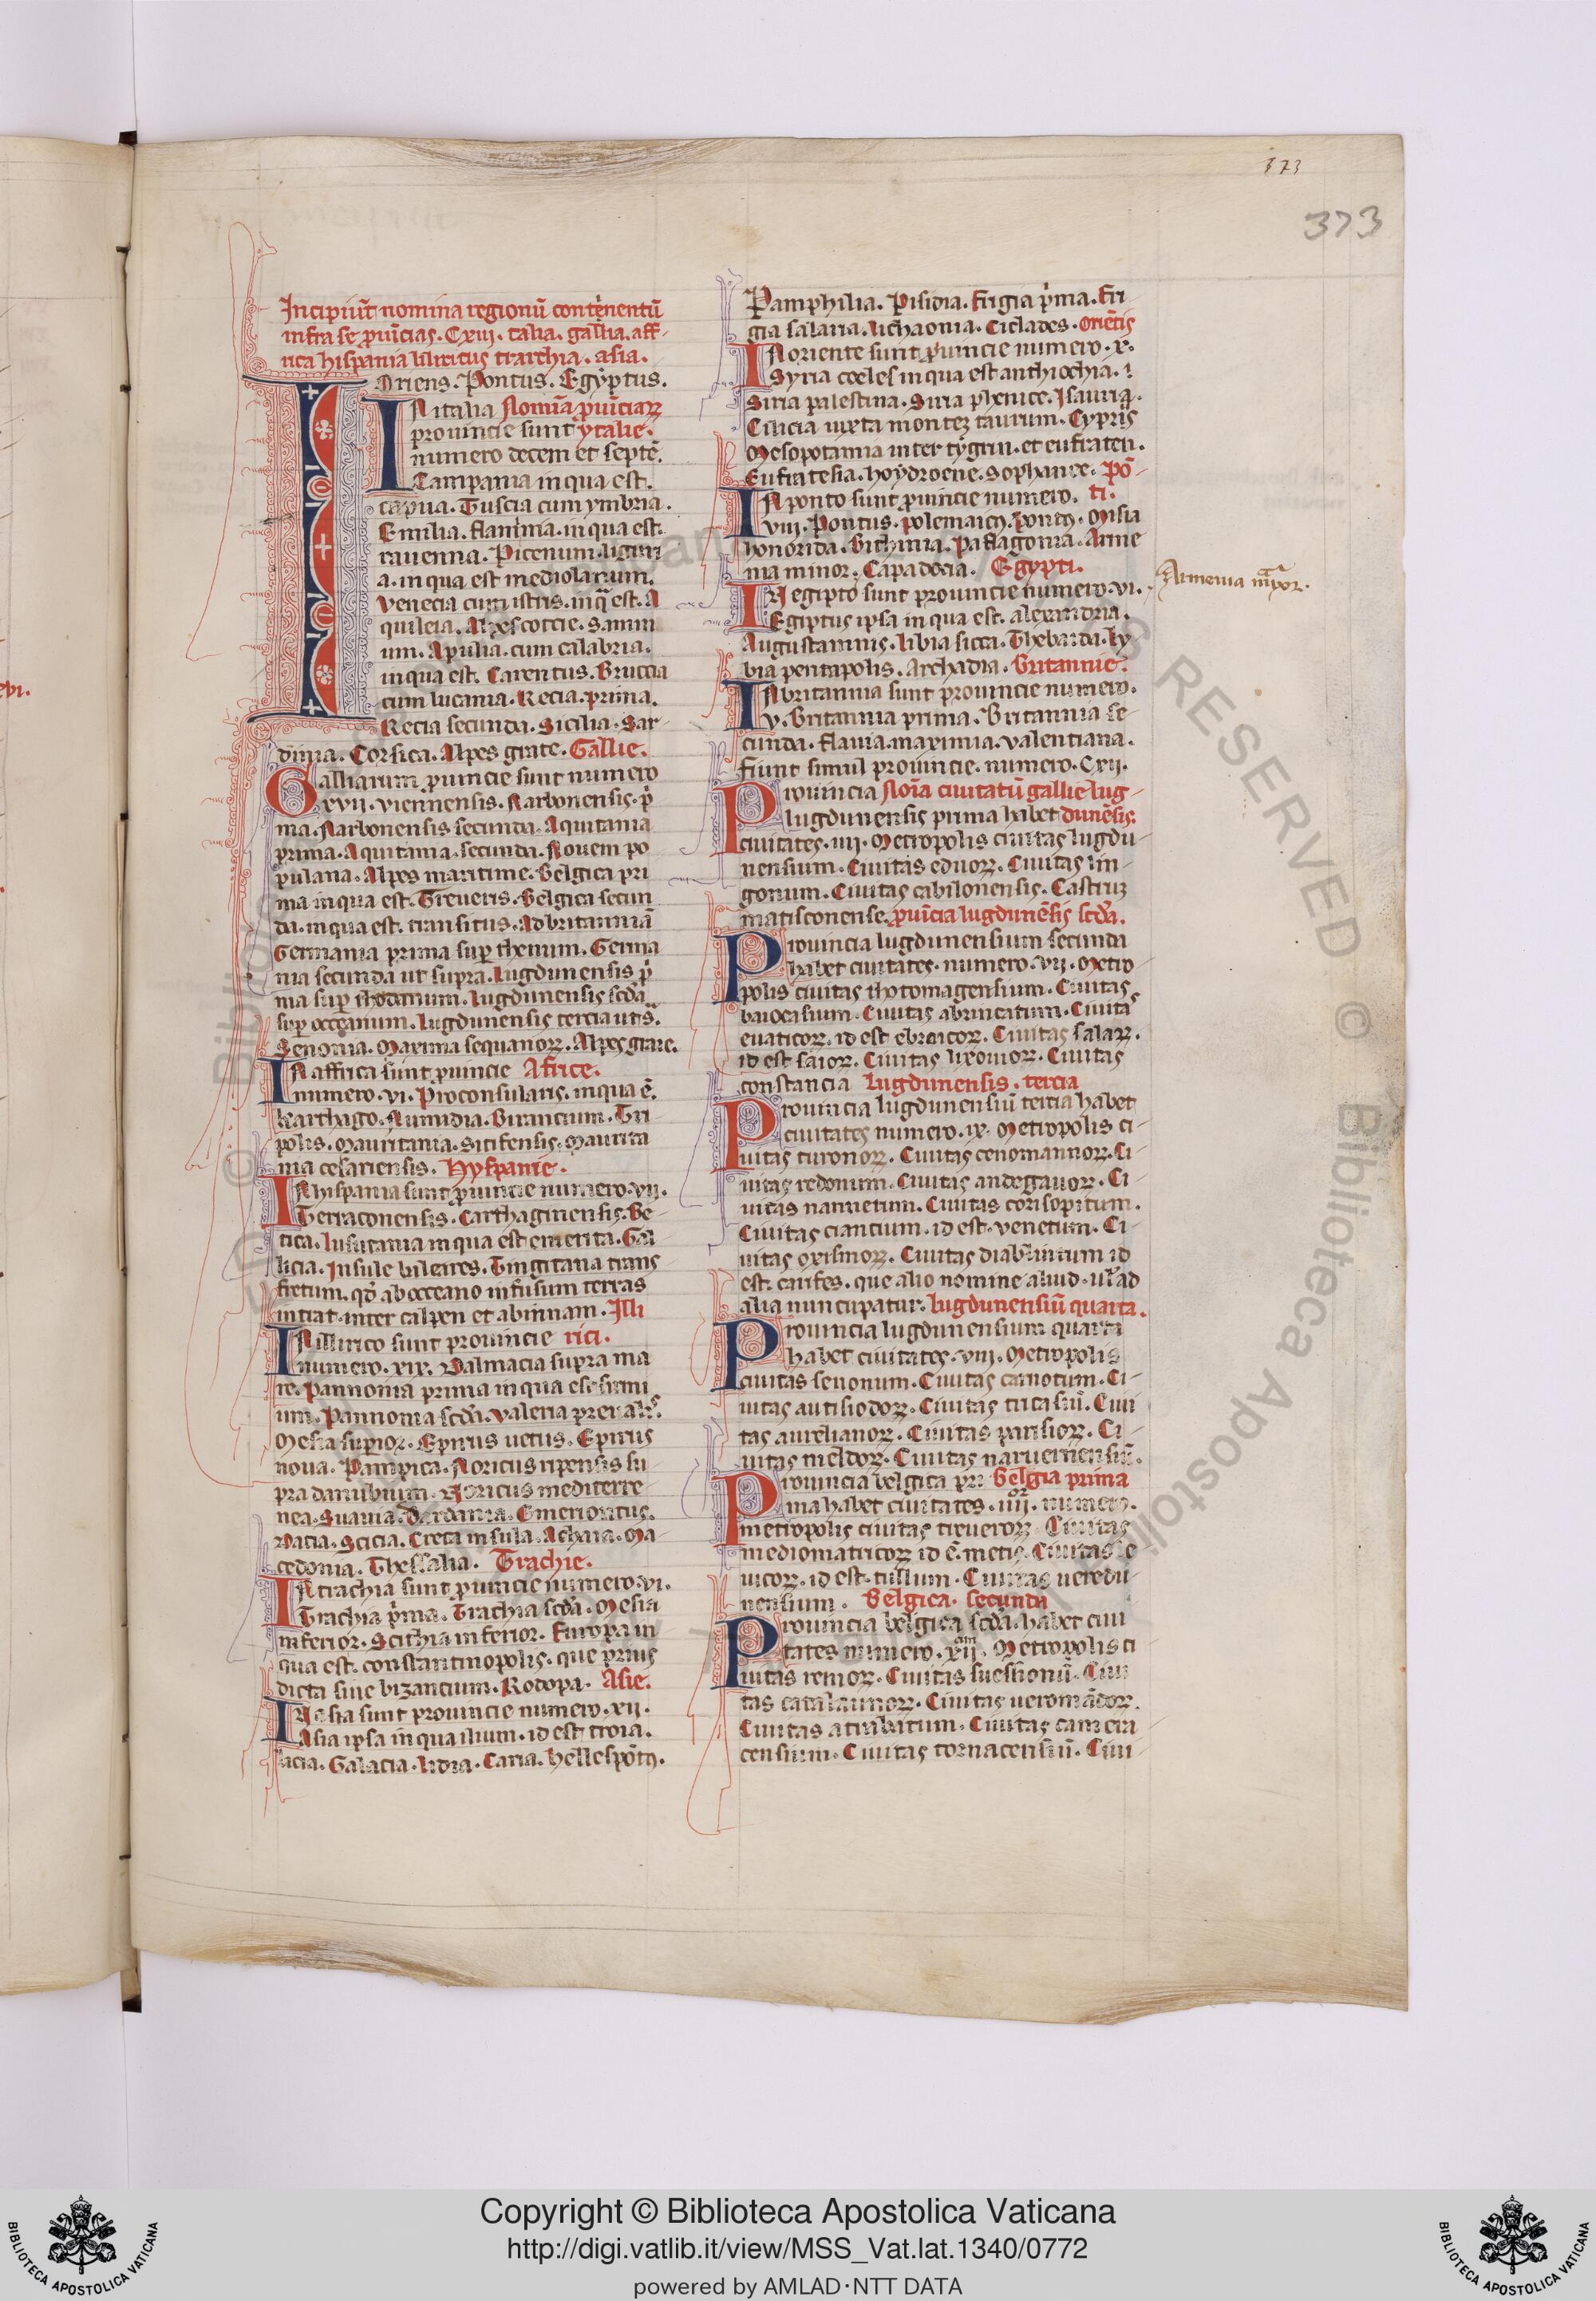 373
373
Incipiūt nomina regionū continentiū
infra se prouīcias. Cxiii. talia. gallia. aff
rica hispania illiricus trachia. asia.
Oriens. Pontus. Egyptus.
IN italia Nomīa prouīciaꝝ
prouincie sunt ytalie.
numero decem et septē.
Campania in qua est.
capua. Tuscia cum ymbria.
Emilia. flaminia. in qua est.
rauenna. Picenum. liguri
a. in qua est mediolanum.
Venecia cum istris. in qͣ est. A
quileia. Alpes coccie. Samni
um. Apulia. cum calabria.
in qua est. Tarentus. Bruccia
cum lucania. Recia. prima.
Recia secunda. Sicilia. Sar-
dinia. Corsica. Alpes graie. Gallie.
Galliarum prouincie sunt numero
xvii. viennensis. Narbonensis. pͥ
ma. Narbonensis secunda. Aquitania
prima. Aquitania. secunda. Nouem po
pulana. Alpes maritime. Belgica pri
ma in qua est. Treueris. Belgica secun
da. in qua est. transitus. Ad britanniā
Germania prima suꝑ rhenum. Germa
nia secunda ut supra. Lugdunensis pͥ
ma suꝑ rhodanum. Lugdunensis scd̄a
suꝑ occeanum. Lugdunensis tercia ut sͣ.
Senonia. Maxima sequanoꝝ. Alpes graie.
IN affrica sunt prouincie Africe.
numero. vi. Proconsularis. in qua ē.
karthago. Numidia. Bizancium. Tri
polis. Mauritania. Sitifensis. Maurita
nia cesariensis. Hyspanie.
IN hispania sunt prouincie numero. vii.
Terraconensis. Carthaginensis. Be-
tica. lusitania in qua est emerita. Gal
licia. Insule baleares. Tingitana trans
fretum. qd̄ ab occeano infusum terras
intrat. inter calpen et abinnam. Illi
IN illirico sunt prouincie rici.
numero. xix. Dalmacia supra ma
re. Pannonia prima in qua est sirmi
um. Pannonia scd̄a. Valeria preualis.
Mesia superior. Epirus uetus. Epirus
noua. Pampica. Noricus ripensis su-
pra danubium. Noricus mediterre-
nea. Suauia. Dardania. Emerioncus.
Dacia. Scicia. Creta insula. Achaia. Ma-
cedonia. Thessalia. Trachie.
IN trachia sunt prouincie numero. vi.
Trachia pͥma. Trachia scd̄a. Mesia
inferior. Scithia inferior. Europa in
qua est. constantinopolis. que prius
dicta siue bizancium. Rodopa. Asie.
IN asia sunt prouincie numero. xii.
Asia ipsa in qua ilium. id est troia.
licia. Galacia. lidia. Caria. hellespōtꝰ.
Pamphilia. Pisidia. Frigia pͥma. Fri-
gia salaria. lichaonia. Ciclades. Oriētis
IN oriente sunt prouincie numero. x.
Syria coeles in qua est anthiochia.
Siria palestina. Siria phenice. Isauria.
Cilicia iuxta monteꝫ taurum. Cypris
Mesopotamia inter tygrin. et eufraten.
Eufratesia. hoydroene. Sophanee. Pō-
IN ponto sunt prouincie numero. ti.
viii. Pontus. polemaicꝰ. pontꝰ. Misia
honorida. Bithinia. Paflagonia. Arme
nia minor. Capadocia. Egypti.
Armenia maior.
IN egipto sunt prouincie numero. vi.
Egiptus ipsa in qua est. alexandria.
Augustamnis. libia sicca. Thebaida. ly
bia pentapolis. Archadia. Britannie.
IN britannia sunt prouincie numero.
v. Britannia prima. Britannia se-
cunda. flauia. maximia. Valentiana.
fiunt simul prouincie. numero. Cxii.
Prouincia Noīa ciuitatū gallie lug-
lugdunensis prima habet dunēsis.
ciuitates. iiii. Metropolis ciuitas lugdu-
nensium. Ciuitas eduoꝝ. Ciuitas lin-
gonum. Ciuitas cabilonensis. Castruꝫ
matisconense. prouīcia lugdunēsis scd̄a.
Prouincia lugdunensium secunda
habet ciuitates. numero. vii. Metro-
polis ciuitas rhotomagensium. Ciuitas
baiocasium. Ciuitas abrincatum. Ciuitas
euaticoꝝ. id est ebroicoꝝ. Ciuitas salaꝝ.
id est saioꝝ. Ciuitas lixouioꝝ. Ciuitas
constancia Lugdunensis. tercia
Prouincia lugdunensiū tercia habet
ciuitates numero. ix. Metropolis ci-
uitas turonoꝝ. Ciuitas cenomannoꝝ. Ci-
uitas redonum. Ciuitas andegauoꝝ. Ci-
uitas nannetum. Ciuitas corisopitum.
Ciuitas ciancium. id est. venetum. Ci-
uitas oxismoꝝ. Ciuitas diablintum id
est. carifes. que alio nomine aliud. ul̓ ad
alia nuncupatur. Lugdunensiū quarta.
Prouincia lugdunensium quarta
habet ciuitates. viii. Metropolis
ciuitas senonum. Ciuitas carnotum. Ci-
uitas autisiodoꝝ. Ciuitas tricasiū. Ciui
tas aurelianoꝝ. Ciuitas parisioꝝ. Ci-
uitas meldoꝝ. Ciuitas naruernensiū.
Prouincia belgica pri Belgia prima
ma habet ciuitates. iiii. numero.
metropolis ciuitas treueroꝝ Ciuitas
mediomatricoꝝ id ē. metis. Ciuitas le
ucoꝝ. id est. tullum. Ciuitas ueredu-
nensium. Belgica. secunda
Prouincia belgica scd̄a. habet ciui
tates numero. xii. Metropolis ci
uitas remoꝝ. Ciuitas suessionū. Ciui
tas catalaunoꝝ. Ciuitas ueromādoꝝ.
Ciuitas atrabatum. Ciuitas camera
censium. Ciuitas tornacensiū. Ciui-
Copyright © Biblioteca Apostolica Vaticana
http://digi.vatlib.it/view/MSS_Vat.lat.1340/0772
powered by AMLAD·NTT DATA
BIBLIOTECA APOSTOLICA VATICANA
BIBLIOTECA APOSTOLICA VATICANA